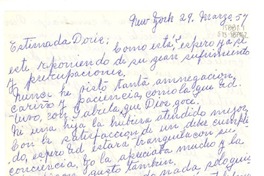 New York 29, Marzo 57
Estimada Doris:
Como está, espero ya se
esté reponiendo de su gran sufrimiento
y preocupaciones.
Nunca he visto tanta abnegacion,
cariño y paciencia como la que Ud.
tuvo, con abuelita, que Dios goce.
Ni una hija la hubiera atendido mejor
Con la satisfaccion de un deber cumpli
do, espero Ud estará tranquila con su
conciencia. Yo la apreciaba mucho y la
gusto tambien
nada